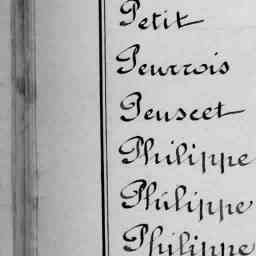 Petit
Peurrois
Peuscet
Philippe
Philippe
Philippe